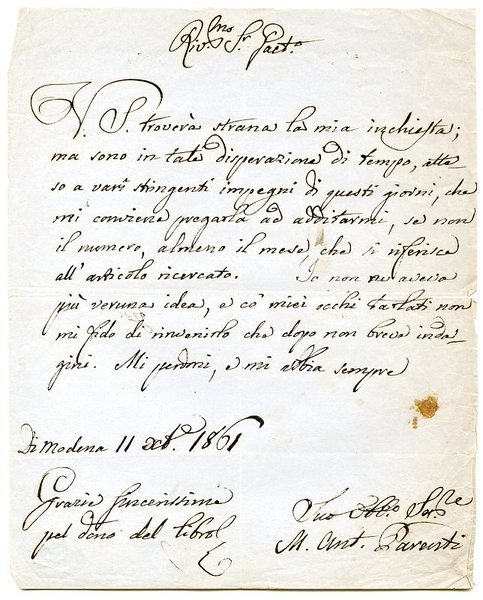 Riv.mo Sr. Gaet.o
V. S. troverà strana la mia inchiesta;
ma sono in tale disperazione di tempo, atte-
so a varî stringenti impegni di questi giorni, che
mi conviene pregarla ad additarmi, se non
il numero, almeno il mese, che si riferisce
all'articolo ricercato. Io non ne aveva
più veruna idea, e co' miei occhi tarlati non
mi fido di rinvenirlo che dopo non breve inda-
gini. Mi perdoni, e mi abbia sempre
Di Modena 11 xb.e 1861
Grazie sincerissime
pel dono del libro!
Suo Obb.o Ser.re
M. Ant. Parenti